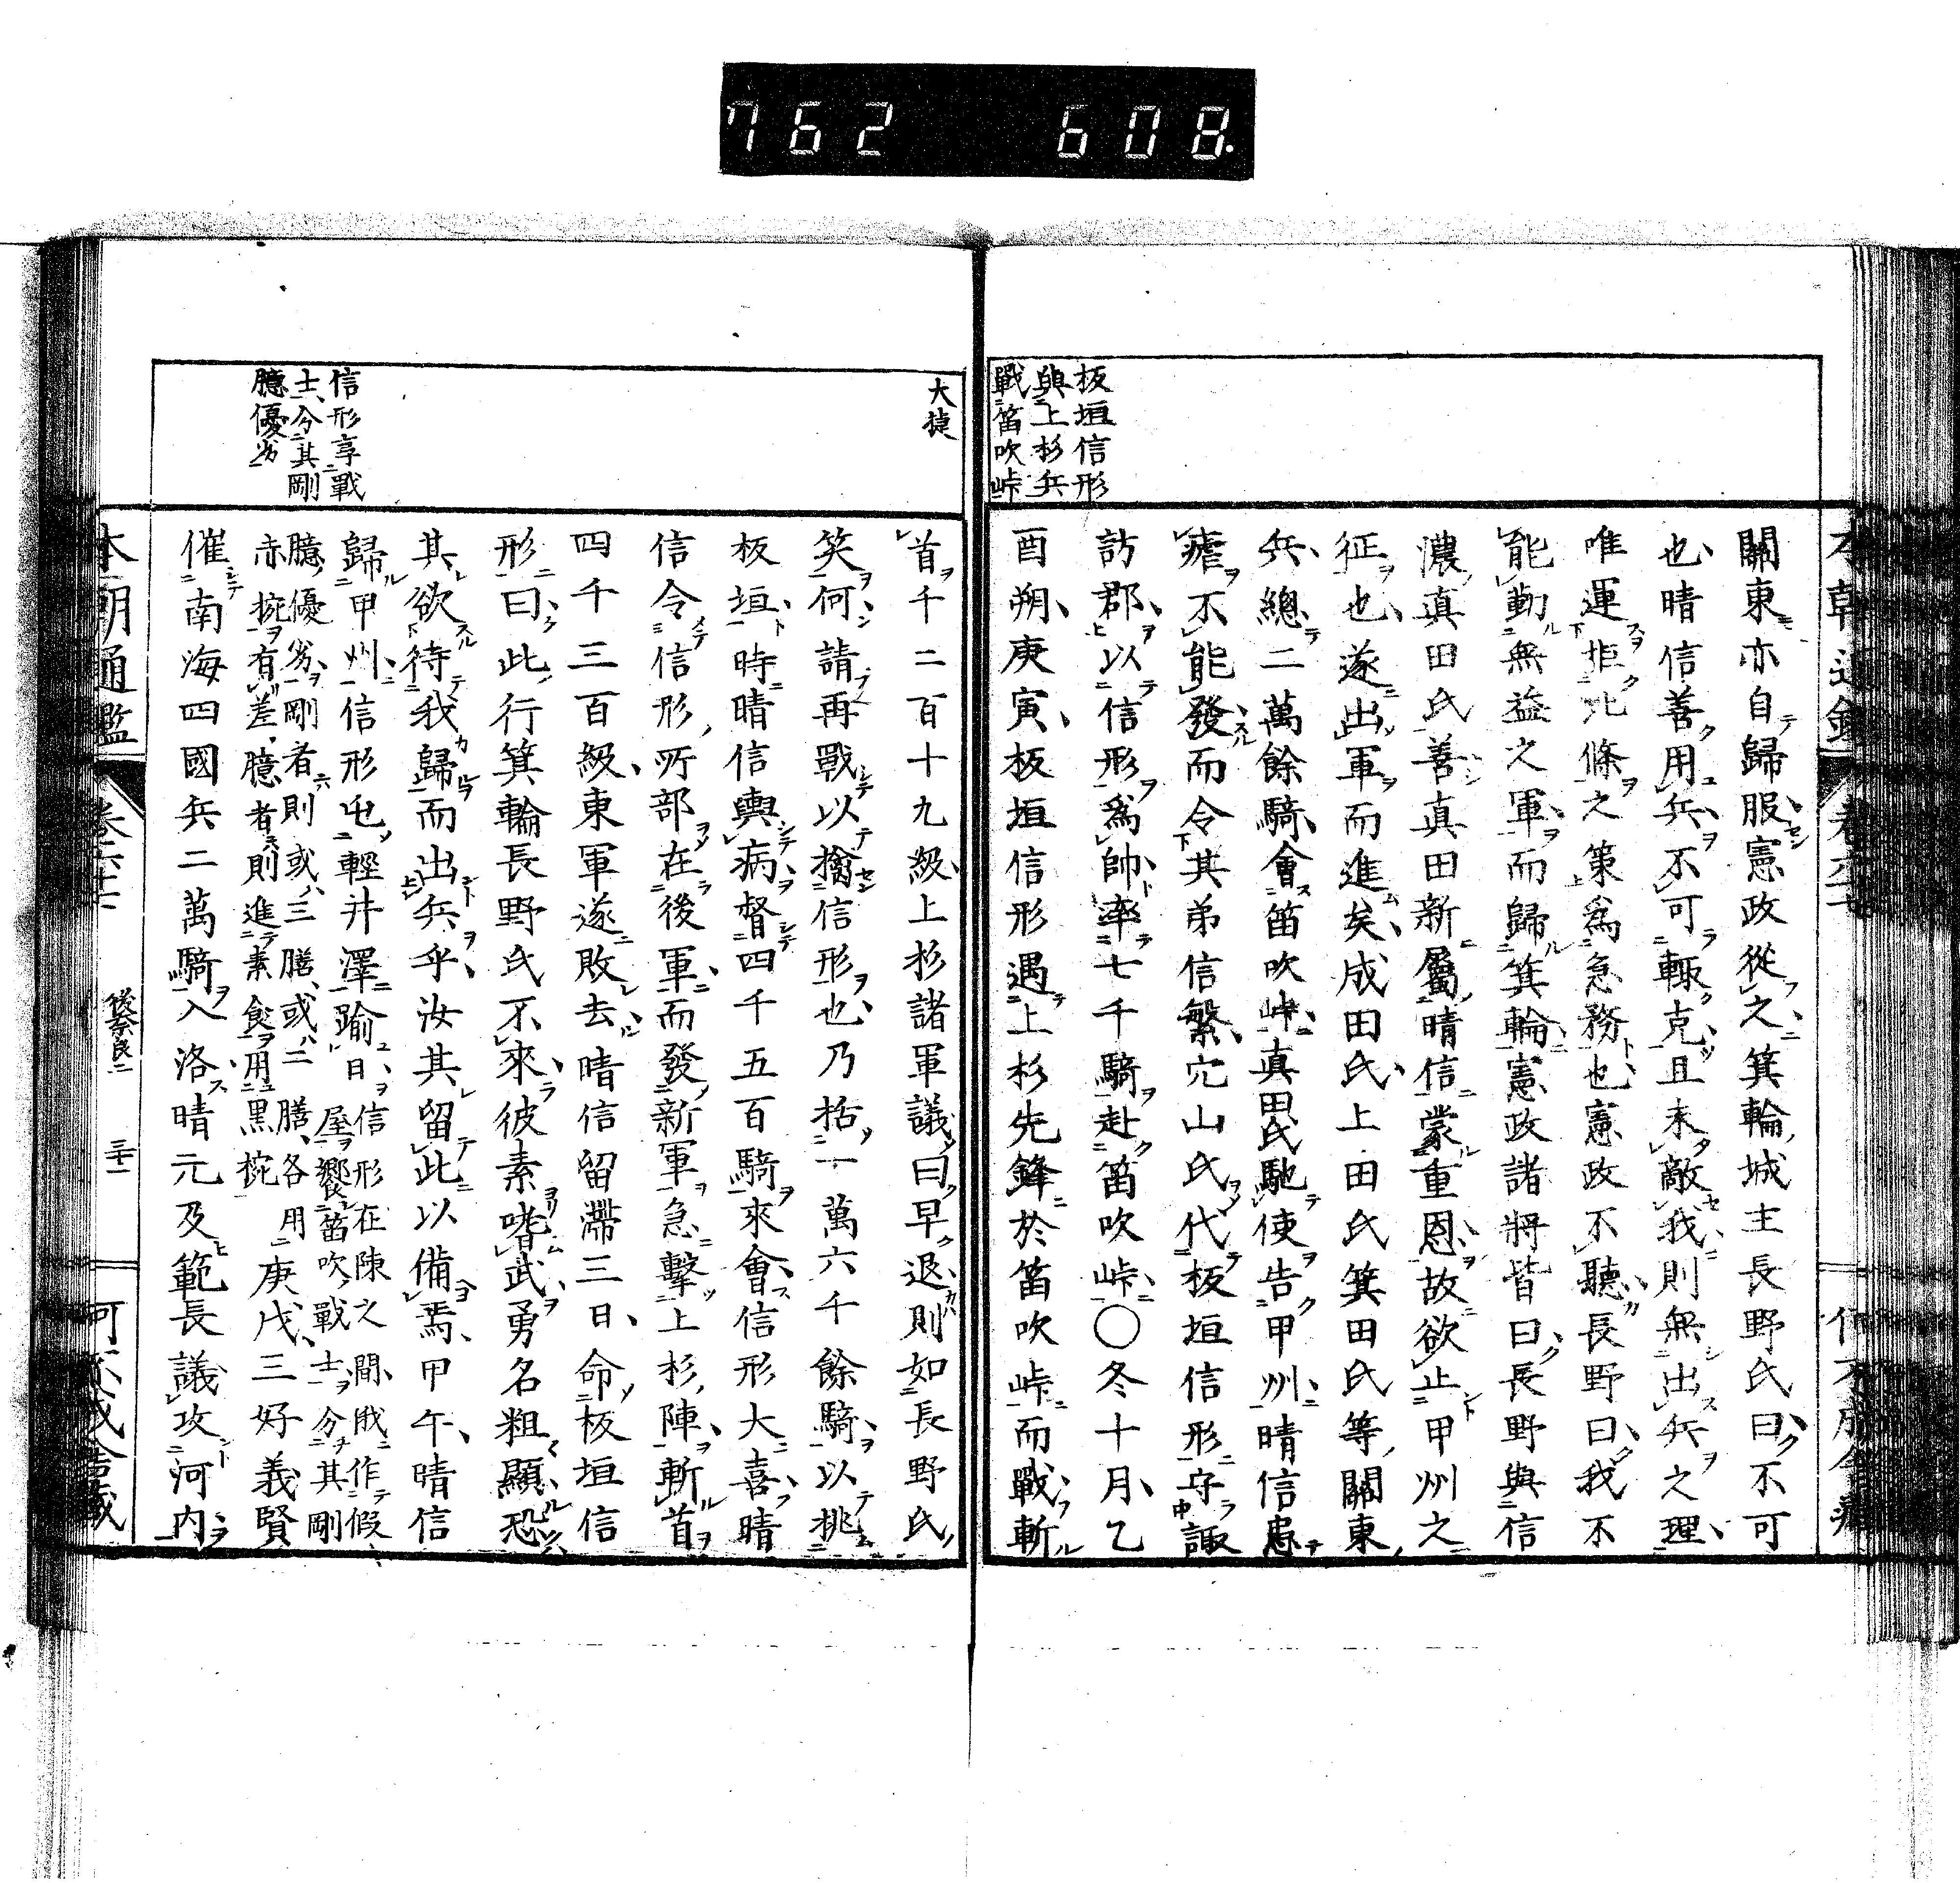 762 608.
板垣信形
與上杉兵
戰笛吹峠
關東亦自歸服憲政從之箕輪城主長野氏曰不可
也晴信善用兵不可輙克且未敵我則無出兵之理
唯運拒北條之策爲急務也憲政不聽長野曰我不
能勤無益之軍而歸箕輪憲政諸將皆曰長野與信
濃真田氏善真田新屬晴信蒙重恩故欲止甲州之
征也遂出軍而進矣成田氏上田氏箕田氏等關東
兵總二萬餘騎會笛吹峠真田氏馳使告甲州晴信患
瘧不能發而令其弟信繁穴山氏代板垣信形守諏
訪郡以信形爲帥率七千騎赴笛吹峠〇冬十月乙
酉朔庚寅板垣信形遇上杉先鋒於笛吹峠而戰斬
大捷
信形享戰
士分其剛
臆優劣
首千二百十九級上杉諸軍議曰早退則如長野氏
笑何請再戰以擒信形也乃括一萬六千餘騎以挑
板垣時晴信輿病督四千五百騎來會信形大喜晴
信令信形所部在後軍而發新軍急擊上杉陣斬首
四千三百級東軍遂敗去晴信留滯三日命板垣信
形曰此行箕輪長野氏不來彼素嗜武勇名粗顯恐
其欲待我歸而出兵乎汝其留此以備焉甲午晴信
歸甲州信形屯輕井澤踰日信形在陳之間俄作假
屋饗笛吹戰士分其剛
臆優劣剛者則或三膳或二膳各用
赤椀有差臆者則進素食用黑椀庚戌三好義賢
催南海四國兵二萬騎入洛晴元及範長議攻河内
本朝通鑑
卷六十七
後奈良二
三十一